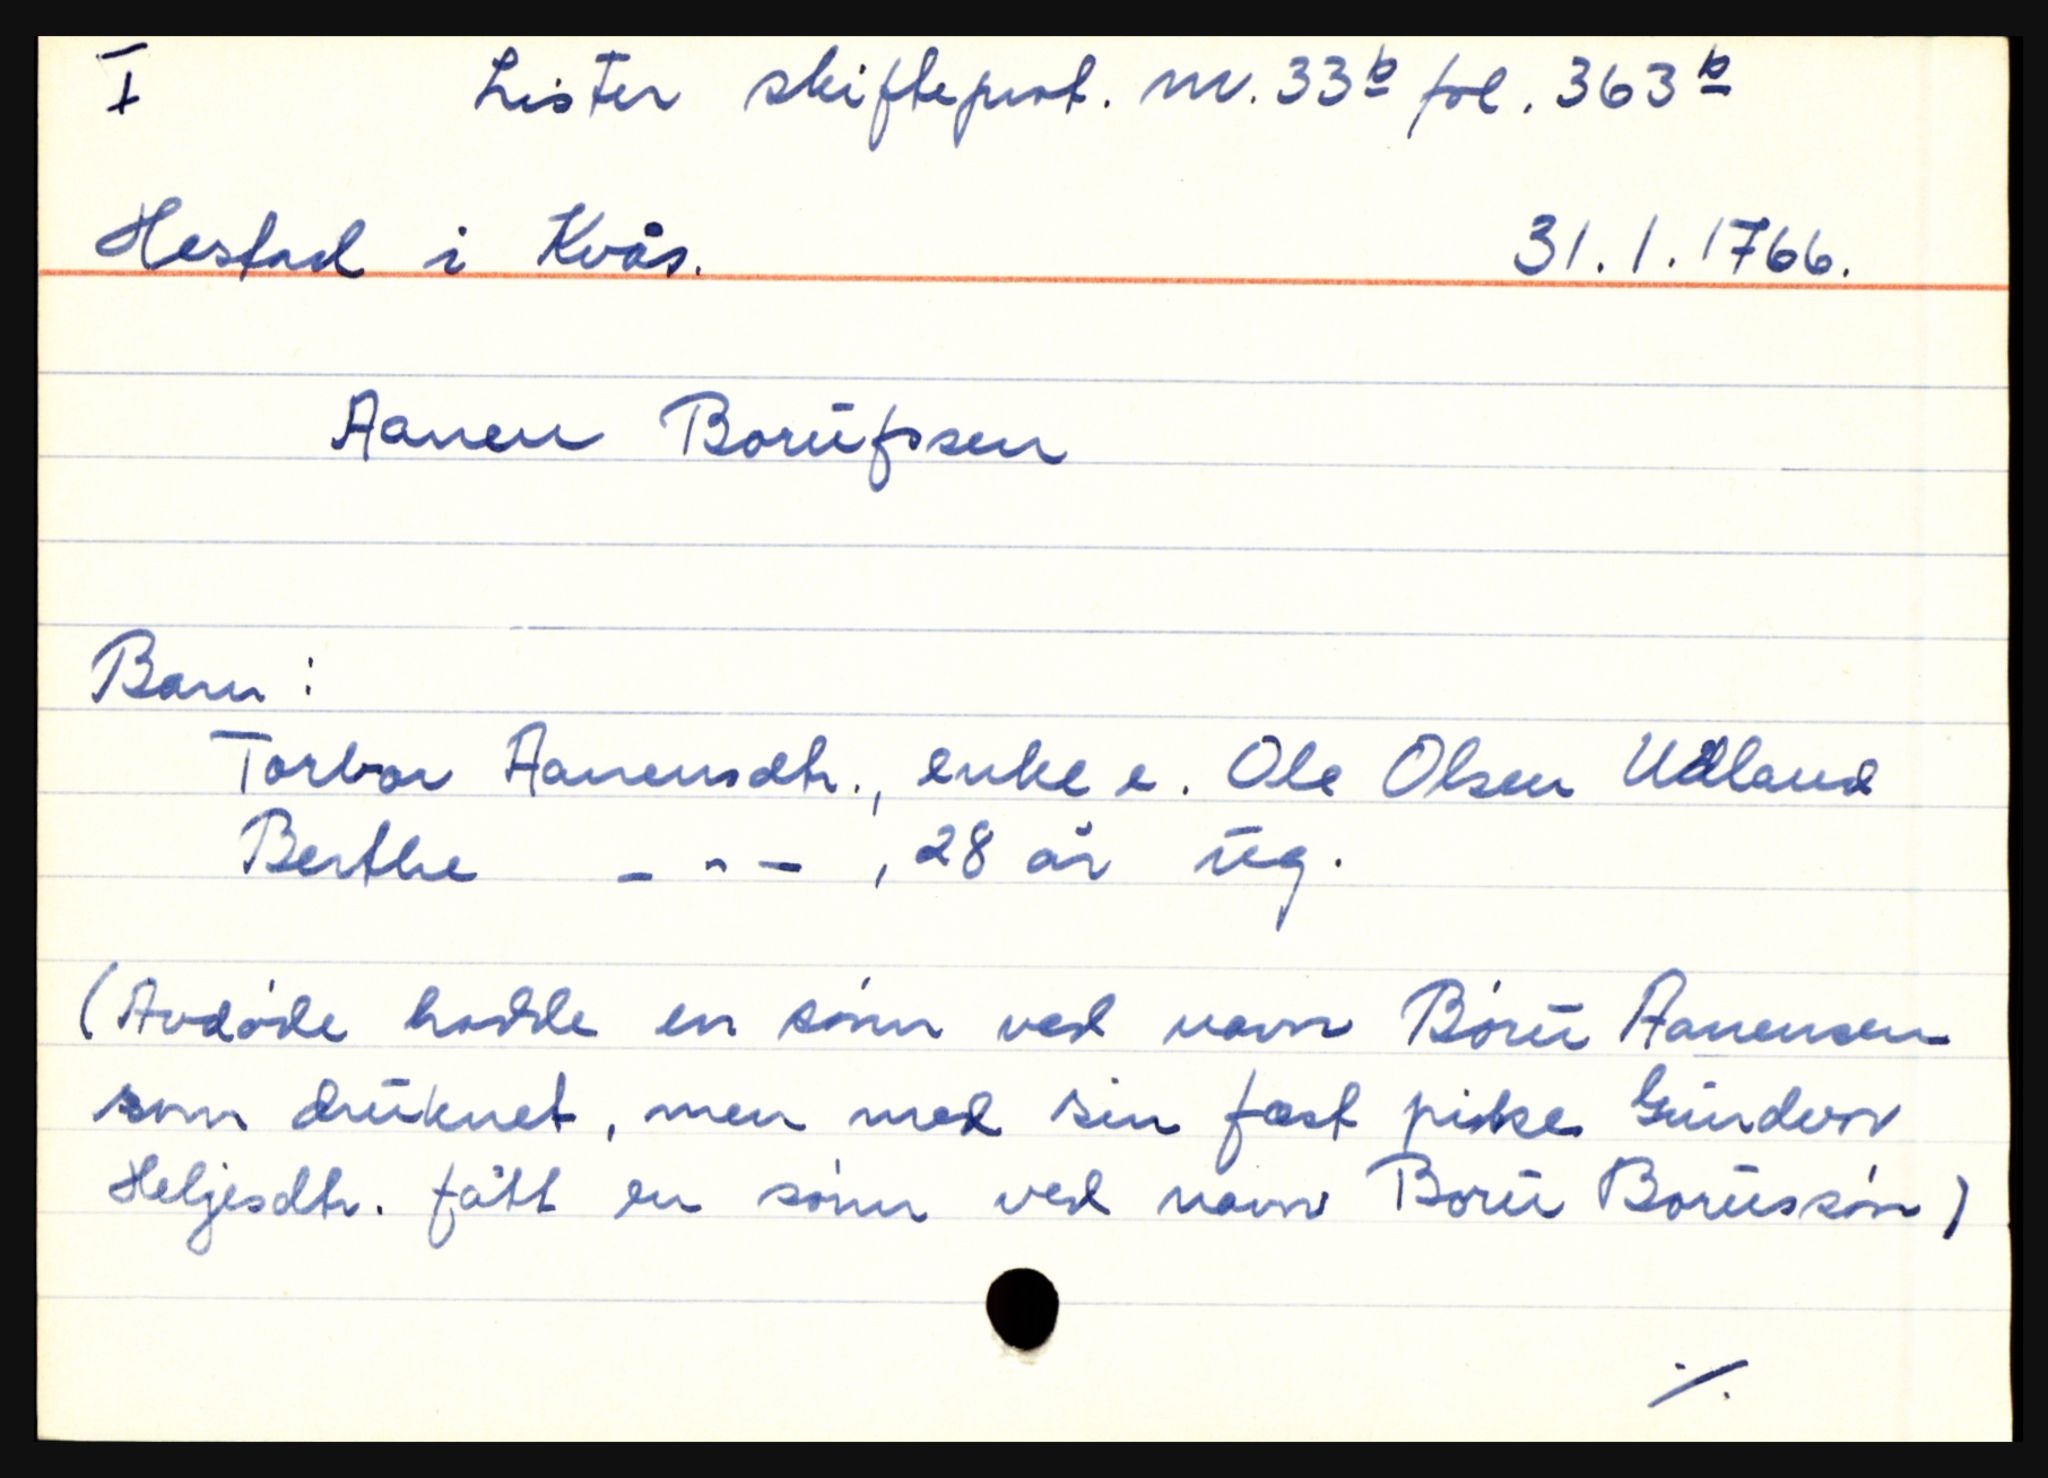 I Lister skifteprot. nr. 33b fol. 363b
Hestad i Kvås. 31.1.1766.
Aanen Borufssen
Barn:
Torbor Aanensdtr., enke e. Ole Olsen Udland
Berthe - " - , 28 år ug.
(Avdøde hadde en sønn ved navn Böru Aanensen
som druknet, men med sin fæst pike Gundvor
Heljesdtr. fått en sønn ved navn Boru Borussøn)
./.